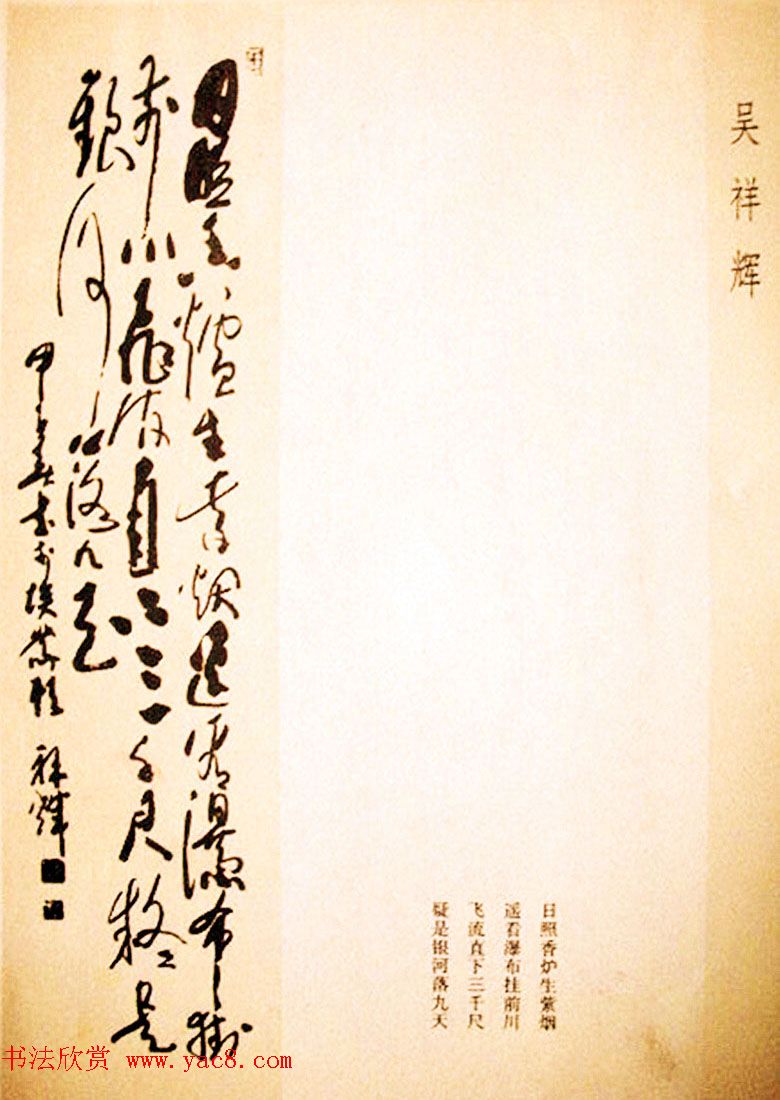 吴祥辉
日照香炉生紫烟
遥看瀑布挂前川
飞流直下三千尺
疑是银河落九天
日照香爐生紫烟遥看瀑布掛
前川飛流直下三千尺疑是
銀河落九天
春書於 祥輝
书法欣赏 www.yac8.com